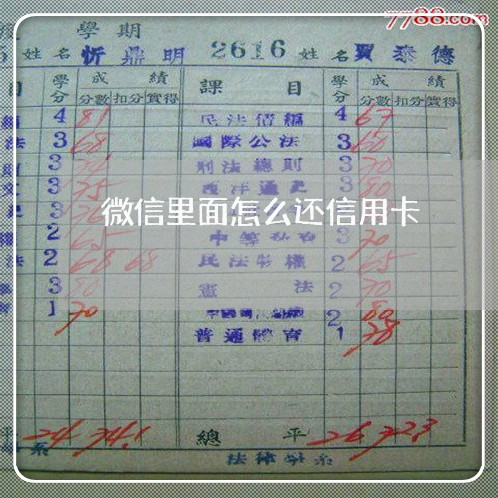 7788.com
學期
姓名 忻鼎明 2616 姓名 賈泰德
目 學分 成績 課目 學分 成績
分數 扣分 實得 分數 扣分 實得
4 81 民法債編 4 67
法 3 68 國際公法 3 60
3 刑法總則 3 70
3 75 西洋通史 3 80
微信里面怎么还信用卡
2 65 3 70
法 2 68 68 民法物權 2 65
3 80 憲法 2 70
1 70 2 80
普通體育 1 78
平 24 74.1 總平 26 72.3
系 法律學系